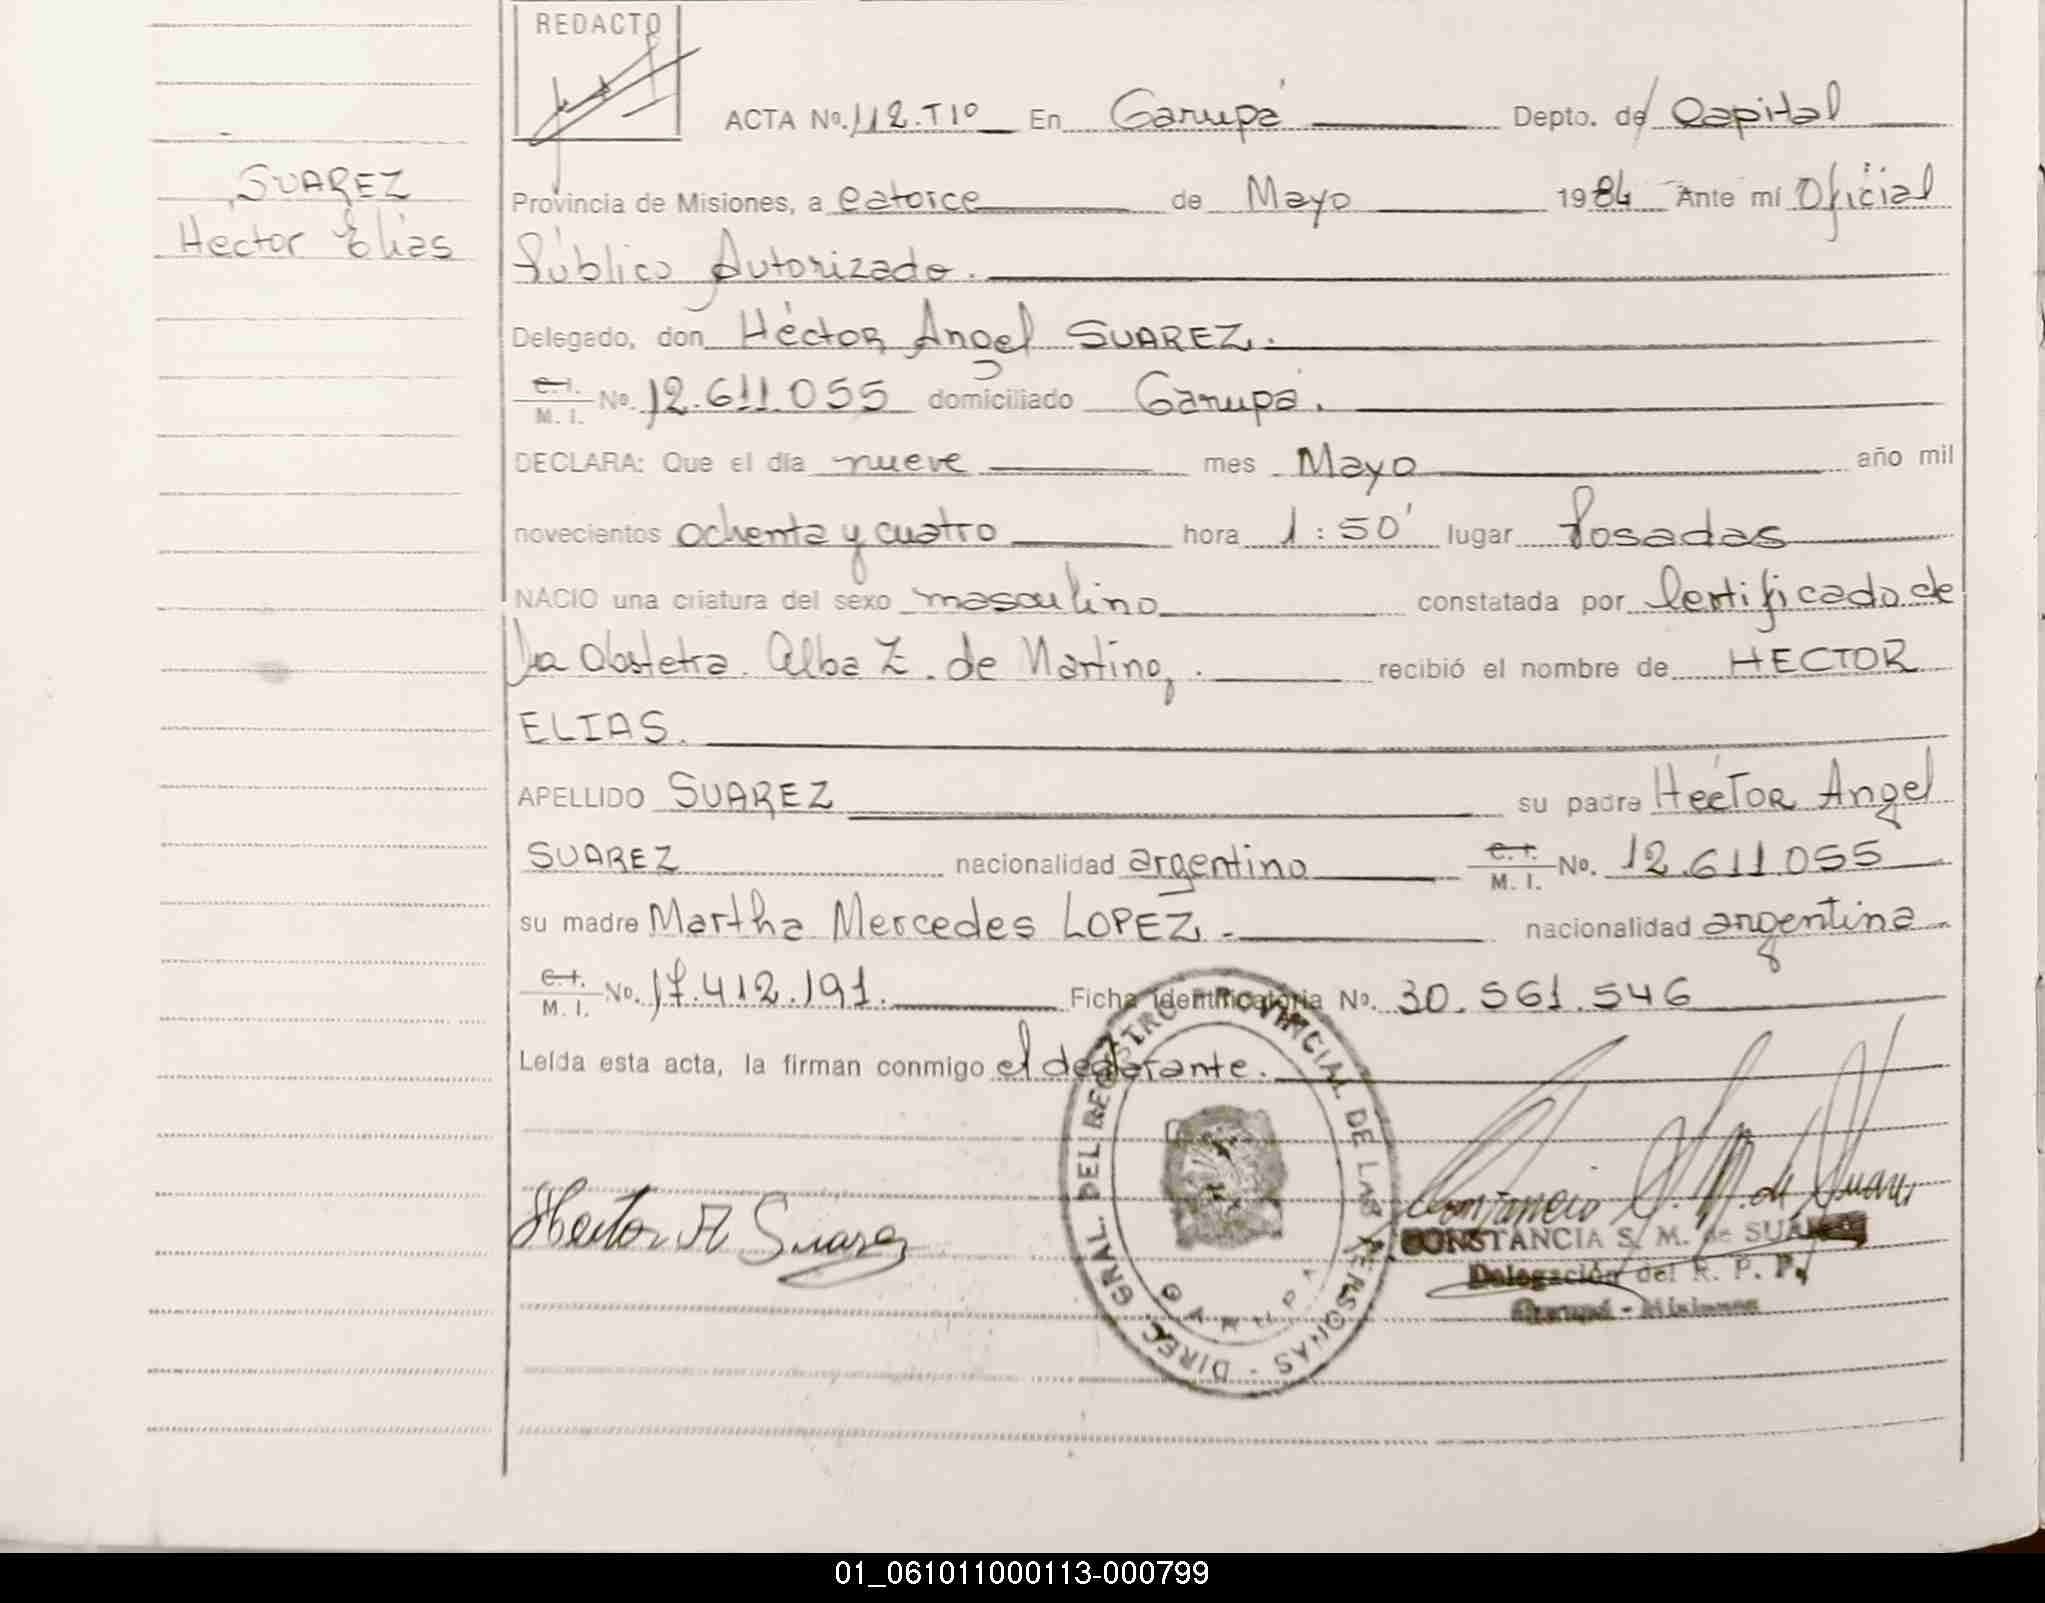 REDACTO
ACTA No. 112.T1º En Garupá Depto. de Capital
SUAREZ
Hector Elias
Provincia de Misiones, a catorce de Mayo 1984 Ante mí Oficial
Público Autorizado.
Delegado, don Héctor Angel SUAREZ.
C.I. M. I. No. 12.611.055 domiciliado Garupá.
DECLARA: Que el día nueve mes Mayo año mil
novecientos ochenta y cuatro hora 1:50' lugar Posadas
NACIO una criatura del sexo masculino constatada por Certificado de
la Obstetra. Alba Z. de Martino, recibió el nombre de HECTOR
ELIAS.
APELLIDO SUAREZ su padre Héctor Angel
SUAREZ nacionalidad argentino C.I. M. I. No. 12.611.055
su madre Martha Mercedes LOPEZ.- nacionalidad argentina
C.I. M. I. No. 17.412.191. Ficha identificatoria No. 30.561.546
Leída esta acta, la firman conmigo el declarante.
DIREC. GRAL. DEL REGISTRO PROVINCIAL DE LAS PERSONAS -
GARUPA
Hector A Suarez
Constancia S. M. de Suarez
CONSTANCIA S. M. de SUAREZ
Delegación del R. P. P.
Garupá - Misiones
01_061011000113-000799